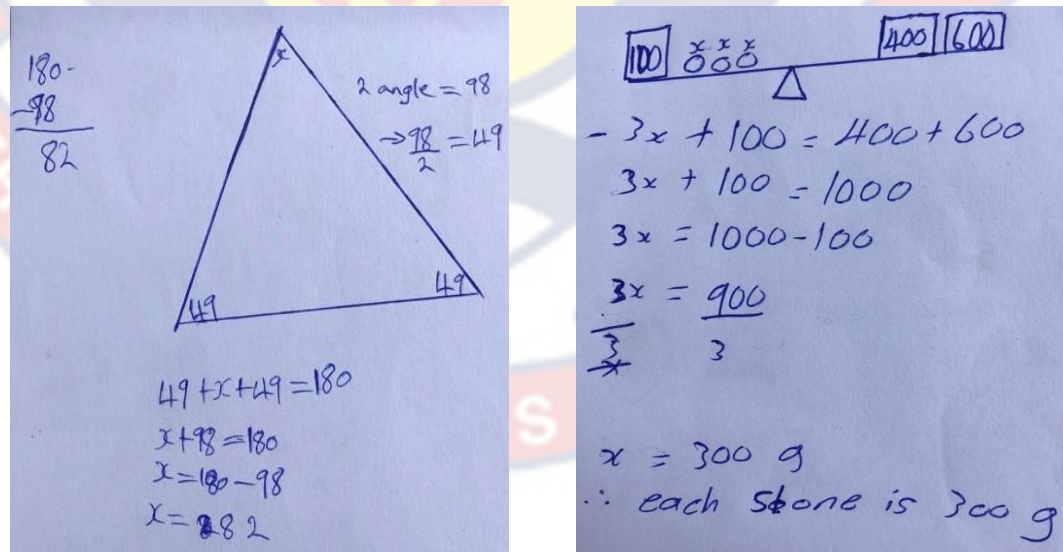 180-
-98
82
x
2 angle = 98
→ 98/2 = 49
49
49
49 + x + 49 = 180
x + 98 = 180
x = 180 - 98
x = 82
100
x x x
400
600
- 3x + 100 = 400 + 600
3x + 100 = 1000
3x = 1000 - 100
3x = 900
3 3
x = 300 g
∴ each stone is 300 g
S